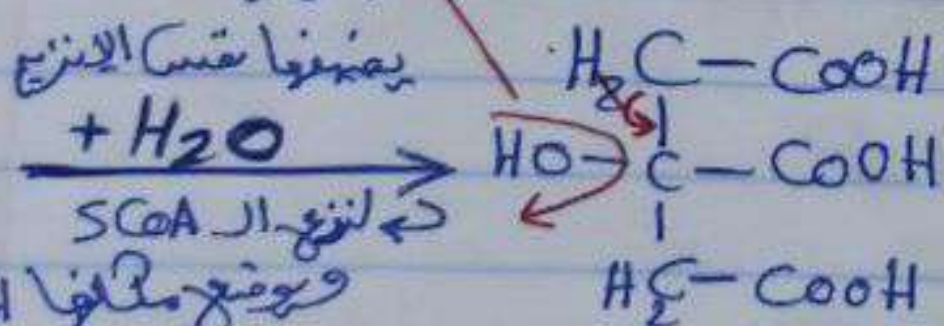 يضيفها نفس الانزيم
+ H2O
لنزع ال SCoA
ويوضع مكانها H
H2C — COOH
HO — C — COOH
H2C — COOH